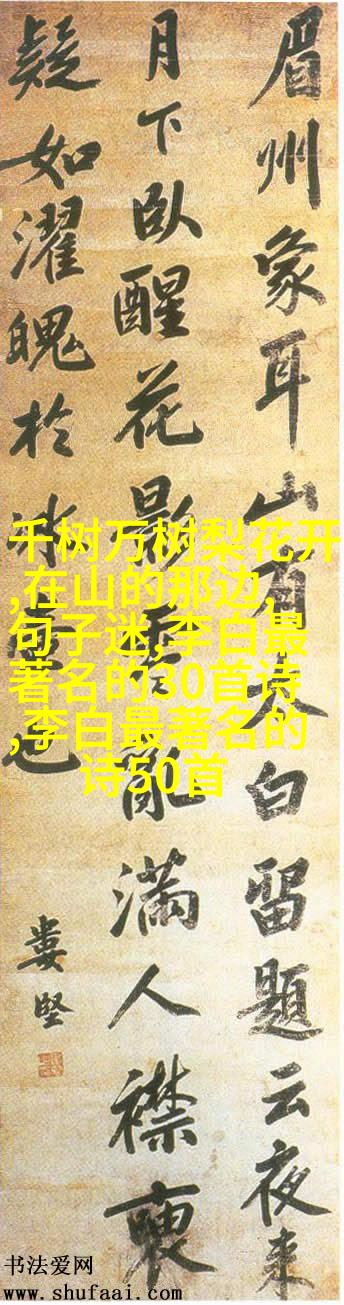 眉州象耳山有太白留題云夜来
月下臥醒花影零亂滿人襟
疑如濯魄於冰壺也
婁堅
千树万树梨花开
,在山的那边,
句子迷,李白最
著名的30首诗
,李白最著名的
诗50首
书法爱网
www.shufaai.com